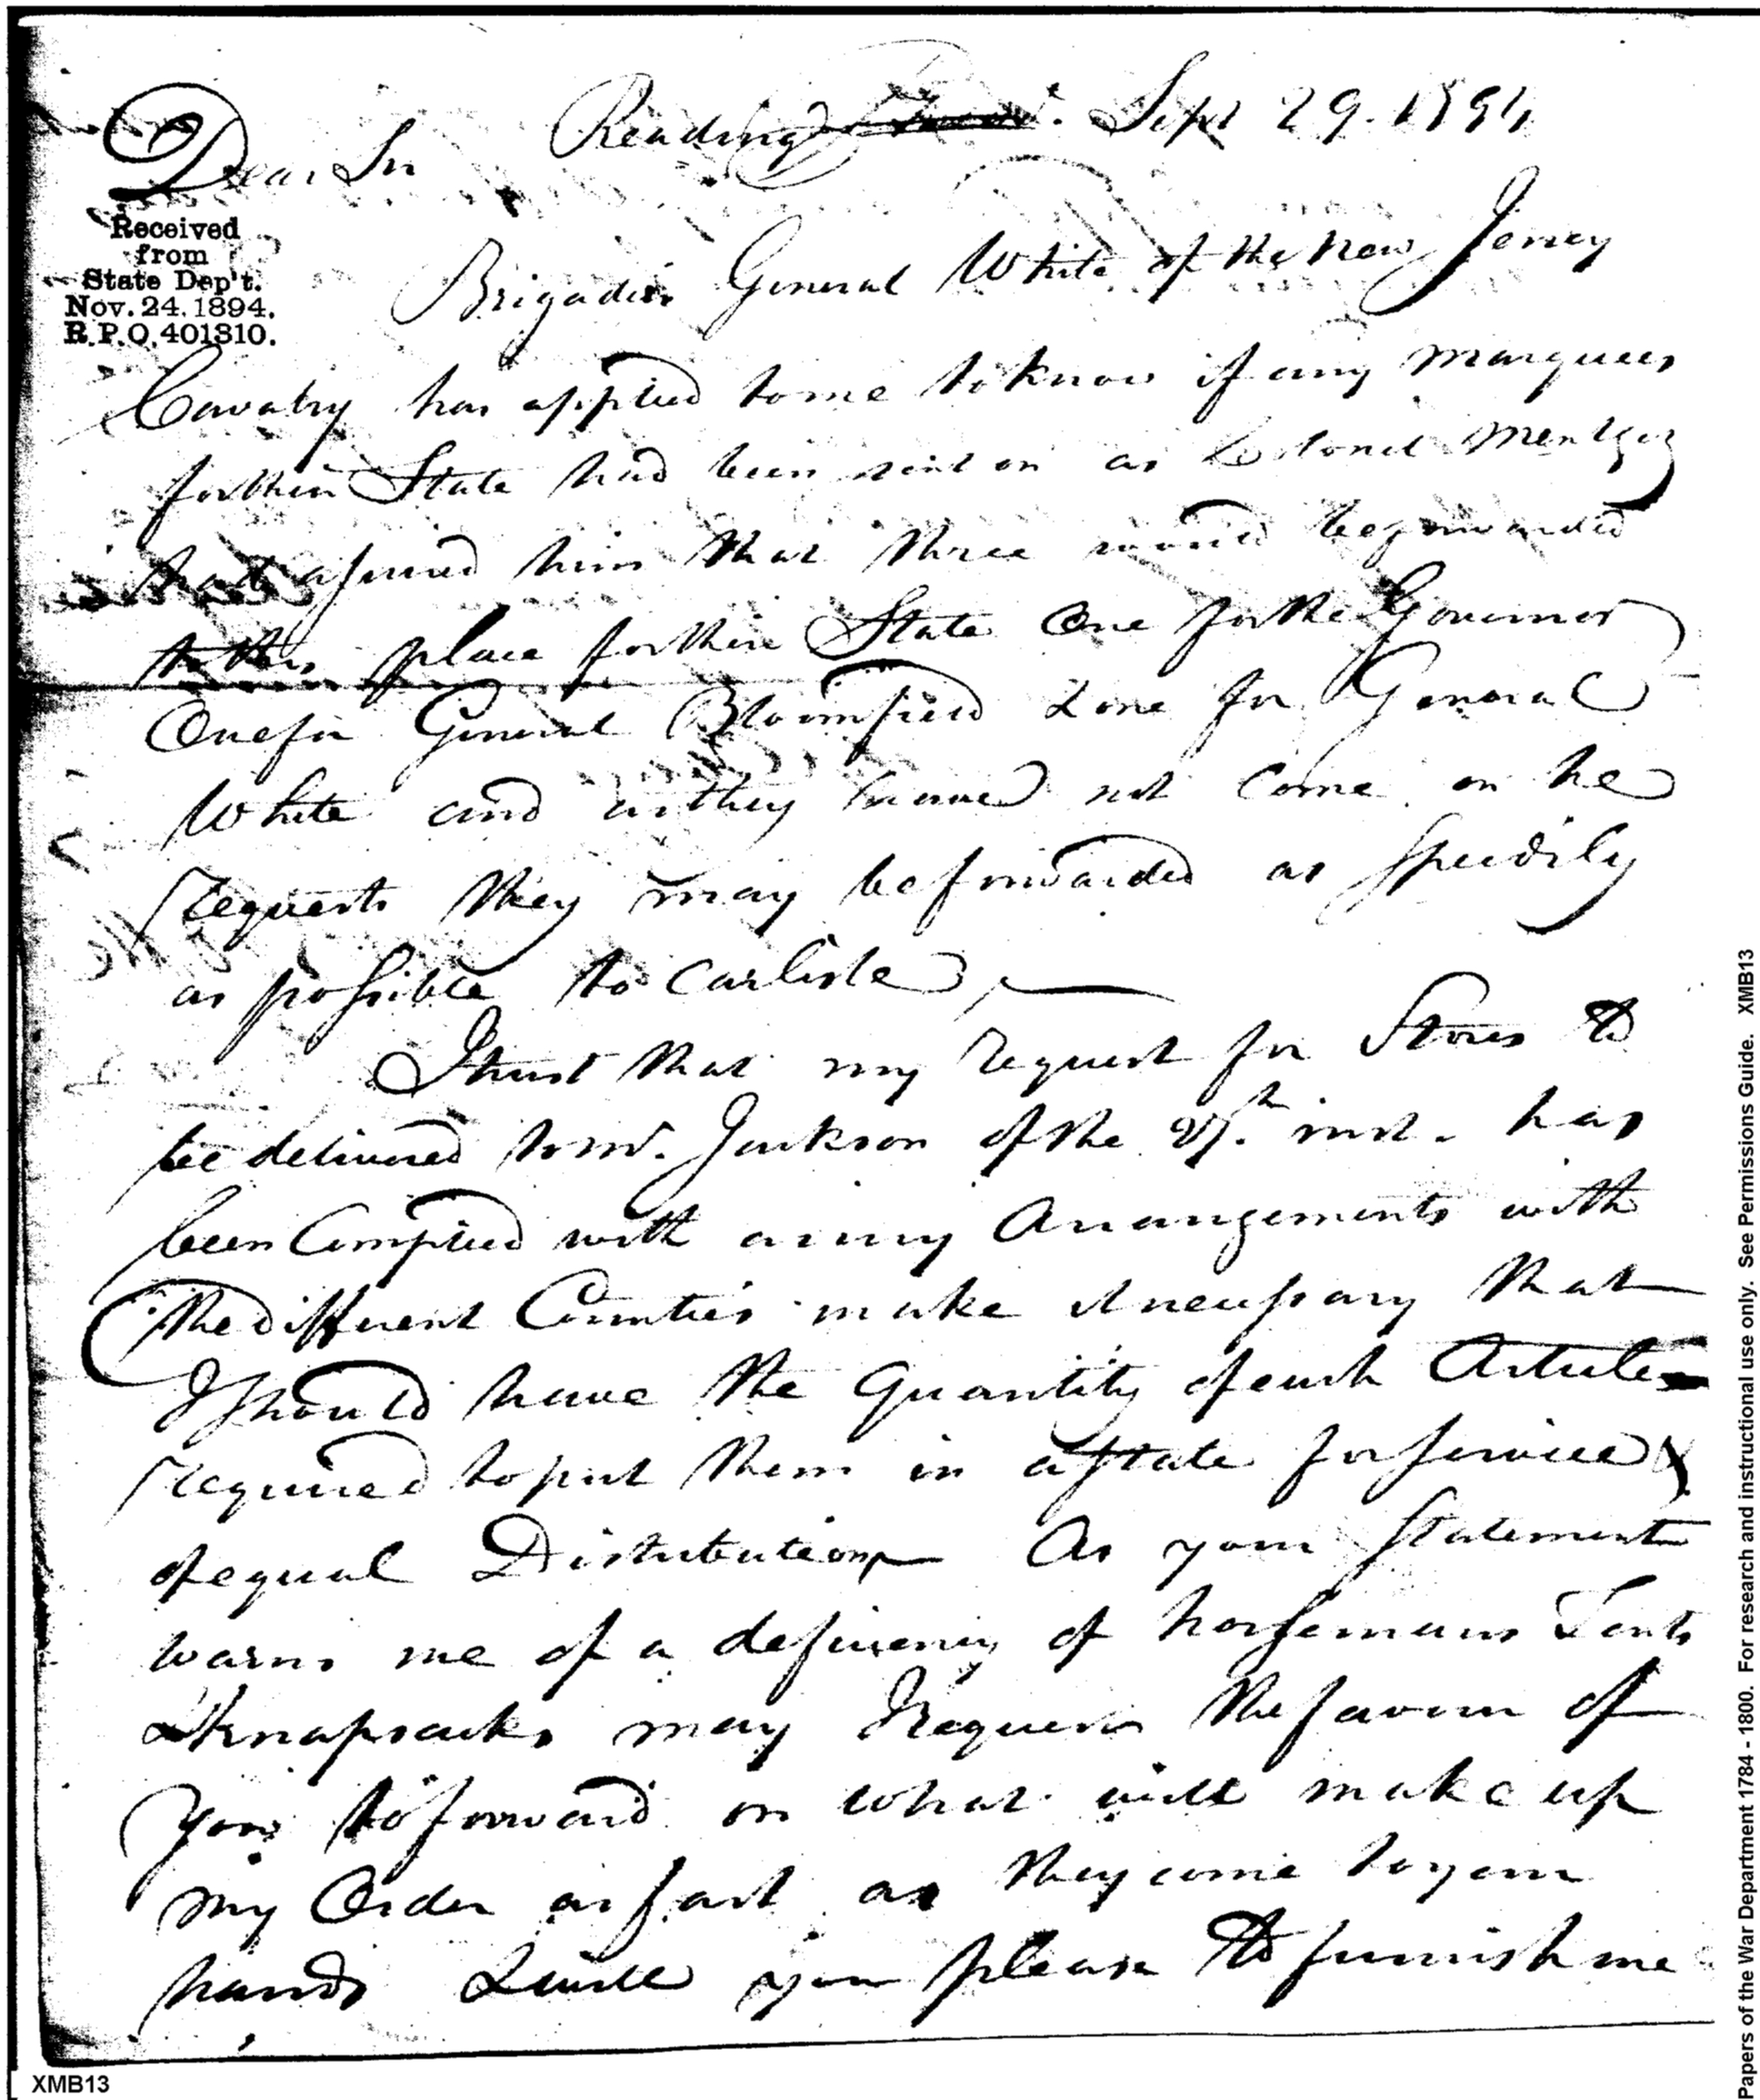 Reading Sept 29. 1794
Dear Sir
Received
from
State Dep't.
Nov. 24. 1894.
R.P.O. 401310.
Brigadier General White of the New Jersey
Cavalry has applied to me to know if any Marquees
for their State had been sent on as Colonel Mentges
had assured him that three would be forwarded
to this place for their State One for the Governor
One for General Bloomfield & one for General
White and as they have not come on he
requests they may be forwarded as speedily
as possible to Carlisle,
I trust that my request for Stores to
be delivered to Mr. Jackson of the 27th inst. has
been Complied with as my Arrangements with
the different Counties make it necessary that
I should have the Quantity of each Article
required to put them in a state for service &
of equal Distribution As your Statement
warns me of a deficiency of horsemans Tents
& knapsacks may I request the favour of
you to forward on what will make up
my Order as fast as they come to your
hands & will you please to furnish me
XMB13
Papers of the War Department 1784 - 1800. For research and instructional use only. See Permissions Guide. XMB13